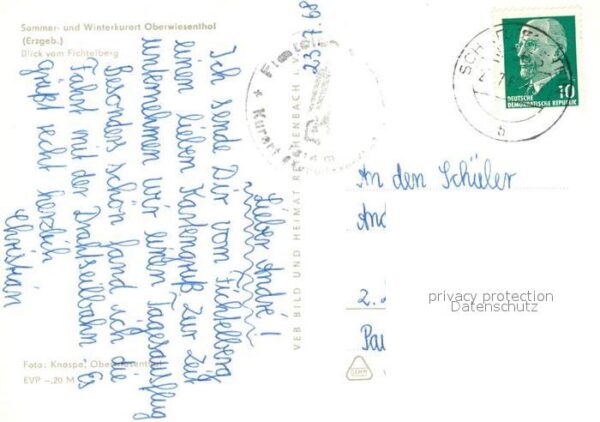 Sommer- und Winterkurort Oberwiesenthal
(Erzgeb.)
Blick vom Fichtelberg
23.7.68
Lieber André!
Ich sende Dir vom Fichtelberg
einen lieben Kartengruß. Zur Zeit
unternehmen wir einen Tagesausflug
Besonders schön fand ich die
Fahrt mit der Drahtseilbahn. Es
grüßt recht herzlich
Christian
Foto: Knospe, Oberwiesenthal
EVP -,20 M
VEB BILD UND HEIMAT REICHENBACH I. V.
Kurort
10
DEUTSCHE
DEMOKRATISCHE REPUBLIK
b
An den Schüler
And
2.
Pau
privacy protection
Datenschutz